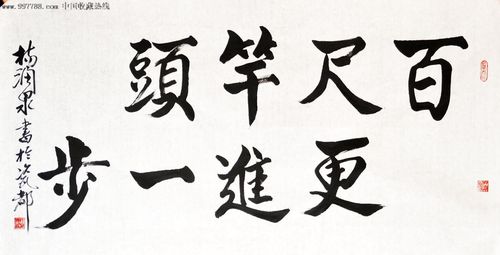 www.997788.com 中国收藏热线
百尺竿頭
更進一步
润泉書於瓷都